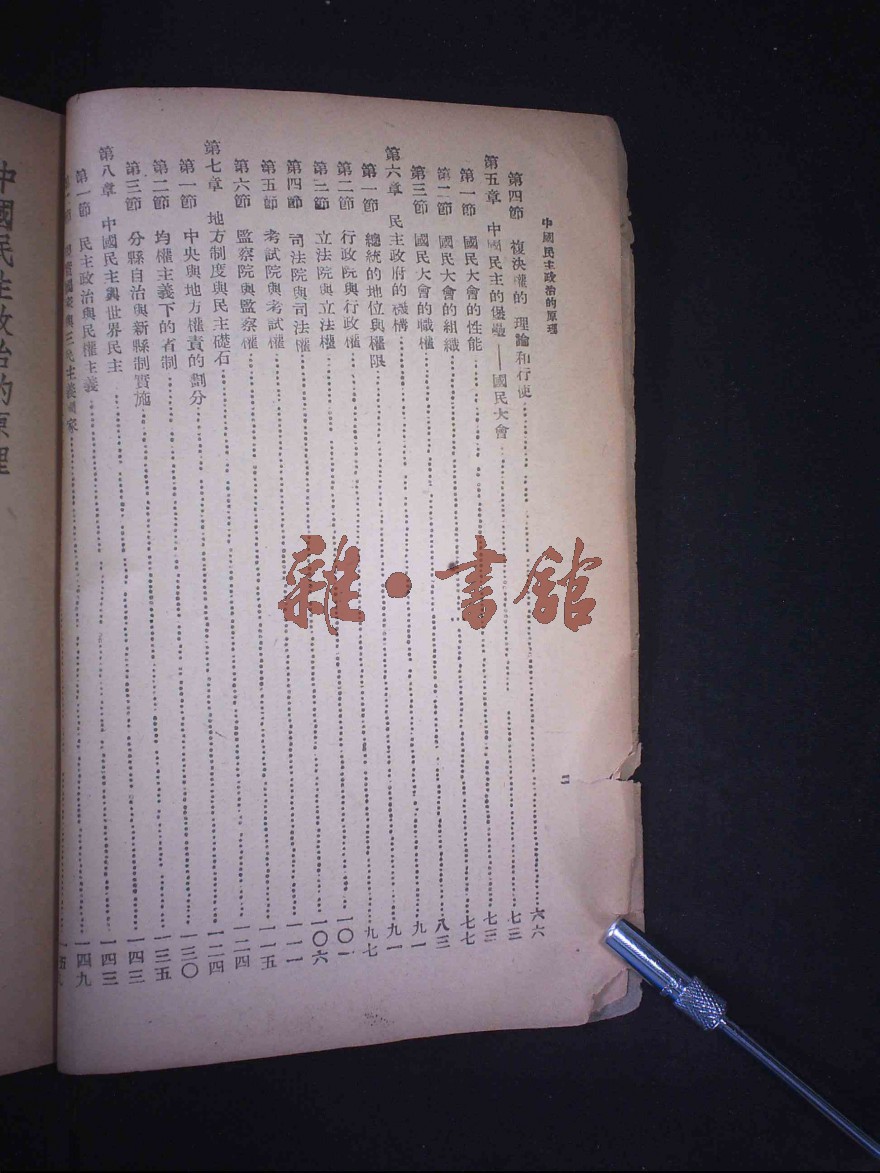 中國民主政治的原理
二
第四節　複決權的理論和行使……六六
第五章　中國民主的堡壘——國民大會……七三
第一節　國民大會的性能……七三
第二節　國民大會的組織……七七
第三節　國民大會的職權……八三
第六章　民主政府的機構……九一
第一節　總統的地位與權限……九一
第二節　行政院與行政權……九七
第三節　立法院與立法權……一〇一
第四節　司法院與司法權……一〇六
第五節　考試院與考試權……一一一
第六節　監察院與監察權……一一五
第七章　地方制度與民主礎石……一二四
第一節　中央與地方權責的劃分……一二四
第二節　均權主義下的省制……一三〇
第三節　分縣自治與新縣制實施……一三五
第八章　中國民主與世界民主……一四三
第一節　民主政治與民權主義……一四三
國家與三民主義國家……一四九
一五
中國民主政治的原理
雜·書館